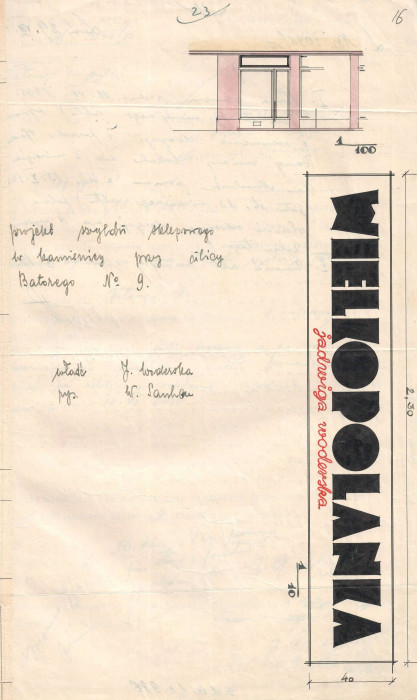 23
16
1
100
projekt szyldu sklepowego
w kamienicy przy ulicy
Batorego № 9.
właśc J. Woderska
rys. W.
WIELKOPOLANKA
jadwiga woderska
2,30
1
10
40